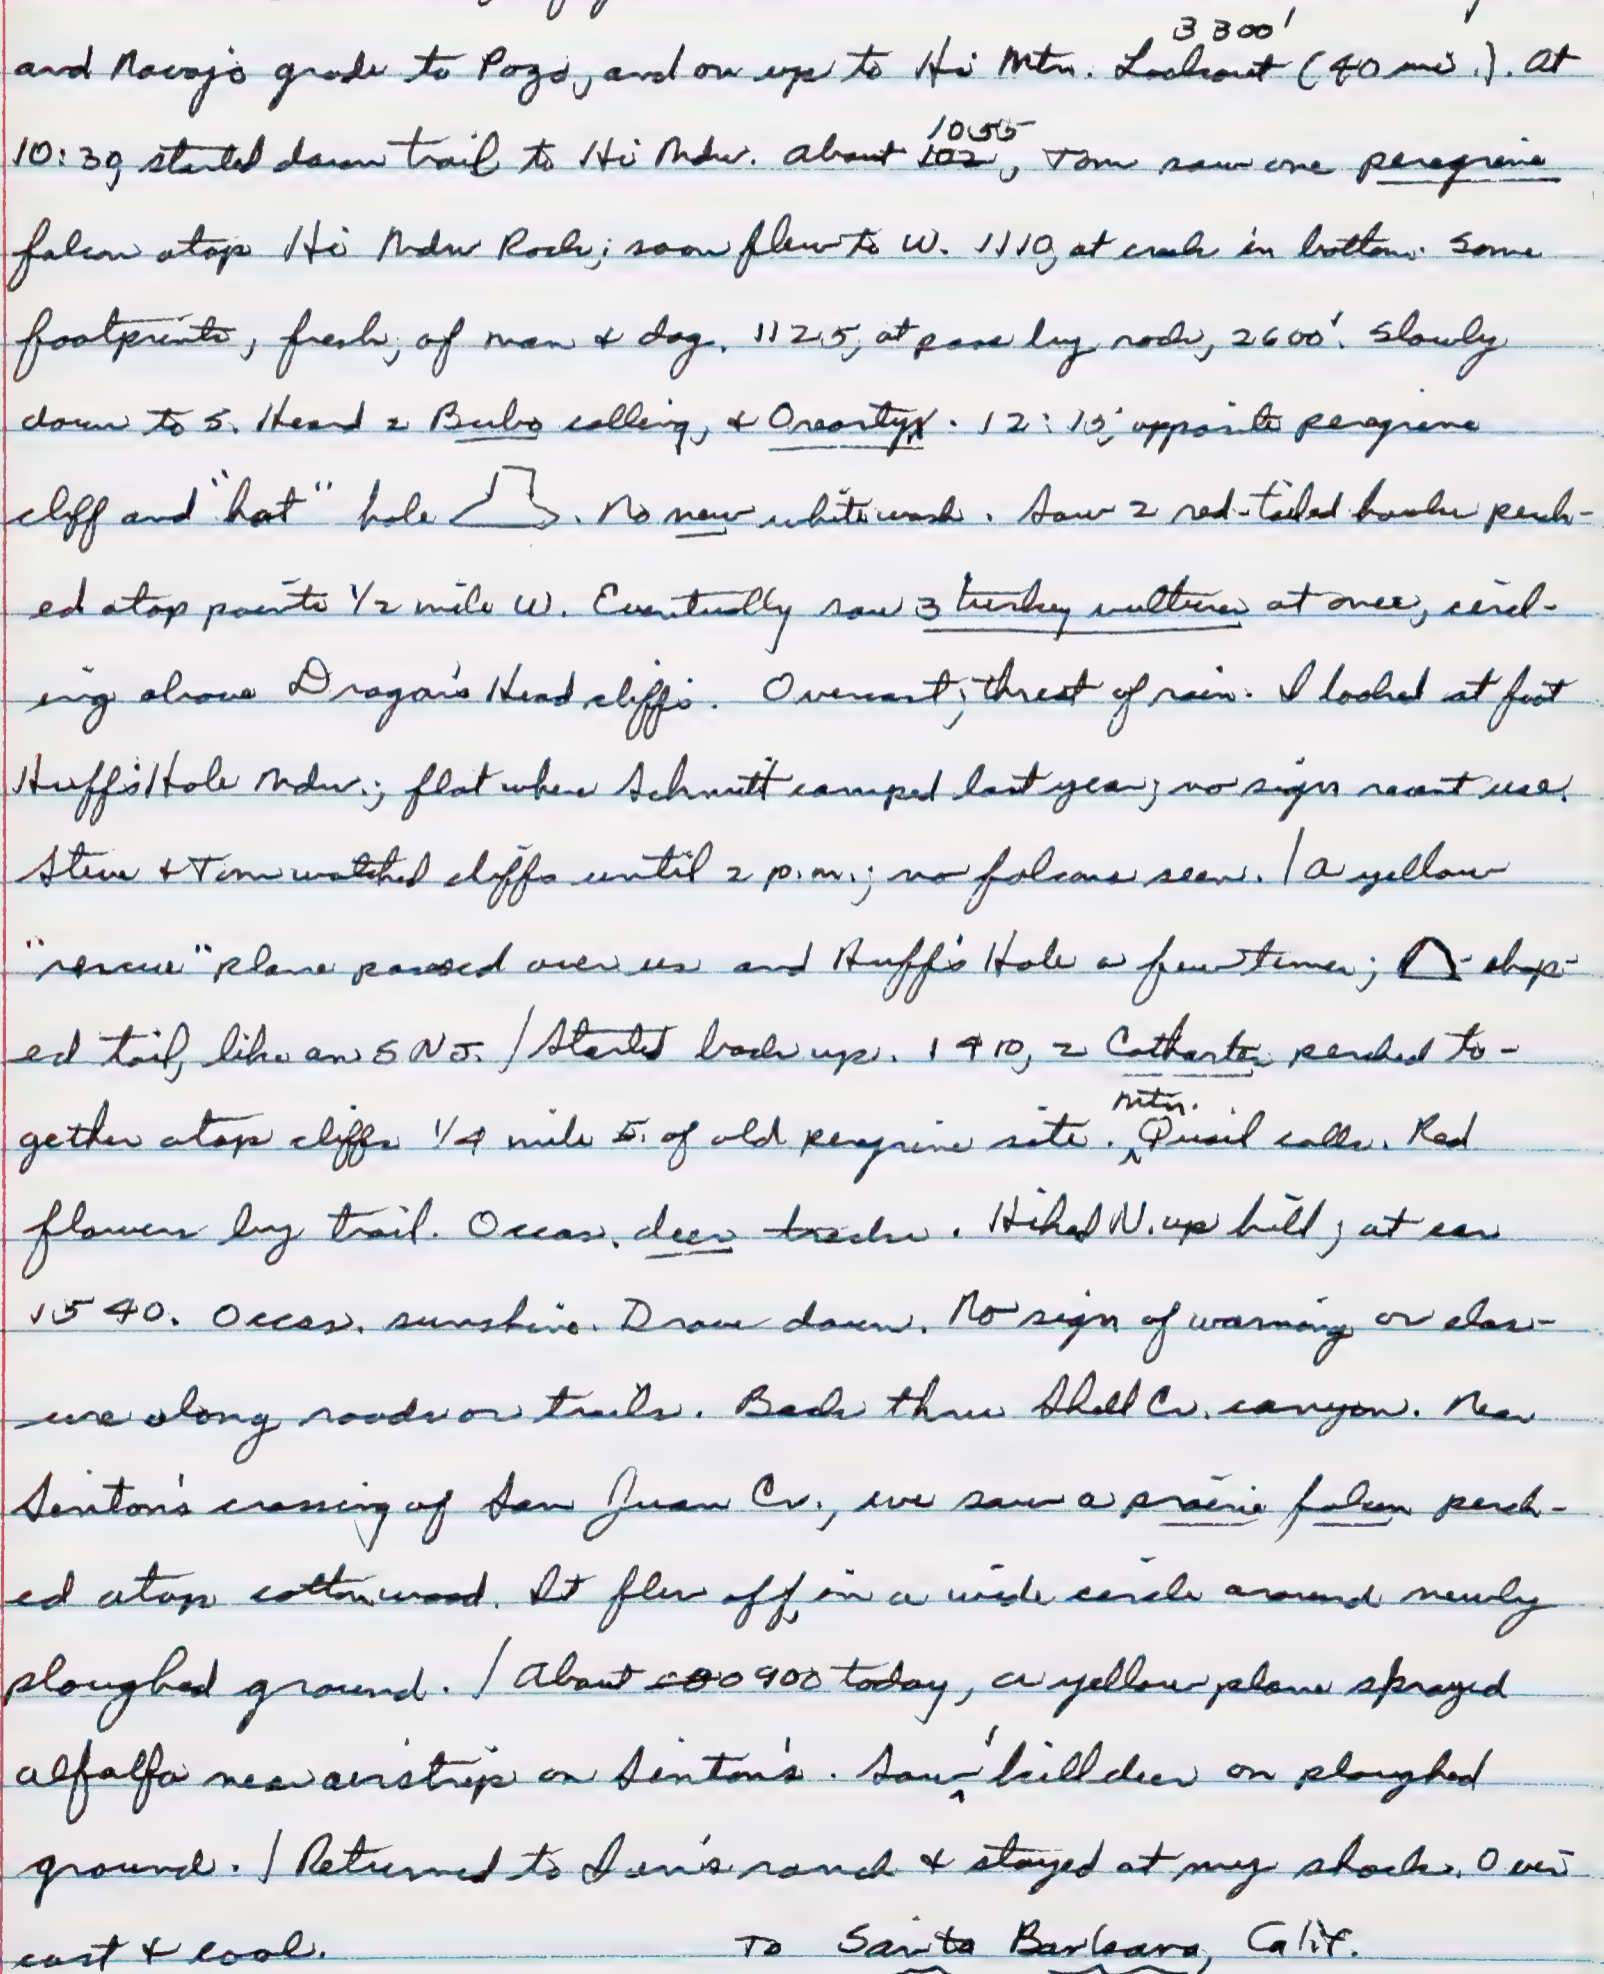 3300'
and Navajo grade to Pozo, and on up to Hi Mtn. Lookout (40 mi.). At
1055
10:30, started down trail to Hi Mdw. About 102, Tom saw one peregrine
falcon atop Hi Mdw Rock; soon flew to W. 1110, at creek in bottom. Some
footprints, fresh, of man & dog. 1125, at pass by rock, 2600'. Slowly
down to S. Heard 2 Bubo calling, & Oreortyx. 12:15, opposite peregrine
cliff and "hat" hole . No new whitewash. Saw 2 red-tailed hawks perch-
ed atop points 1/2 mile W. Eventually saw 3 turkey vultures at once, circl-
ing above Dragon's Head cliffs. Overcast; threat of rain. I looked at foot
Huff's Hole Mdw.; flat where Schmitt camped last year; no sign recent use.
Steve & Tom watched cliffs until 2 p.m.; no falcons seen. / A yellow
"rescue" plane passed over us and Huff's Hole a few times; -shap-
ed tail, like an SNJ. / Started back up. 1410, 2 Cathartes perched to-
gether atop cliffs 1/4 mile E. of old peregrine site. ^ Mtn. Quail calls. Red
flowers by trail. Occas. deer tracks. Hiked N. up hill; at car
1540. Occas. sunshine. Drove down. No sign of warning or clos-
ure along roads or trails. Back thru Shell Cr. canyon. Near
Sinton's crossing of San Juan Cr., we saw a prairie falcon perch-
ed atop cottonwood. It flew off in a wide circle around newly
ploughed ground. / About 0900 today, a yellow plane sprayed
alfalfa near airstrip on Sinton's. Saw ^ 1 killdeer on ploughed
ground. / Returned to Ian's ranch & stayed at my shack. Over
cast & cool. To Santa Barbara, Calif.